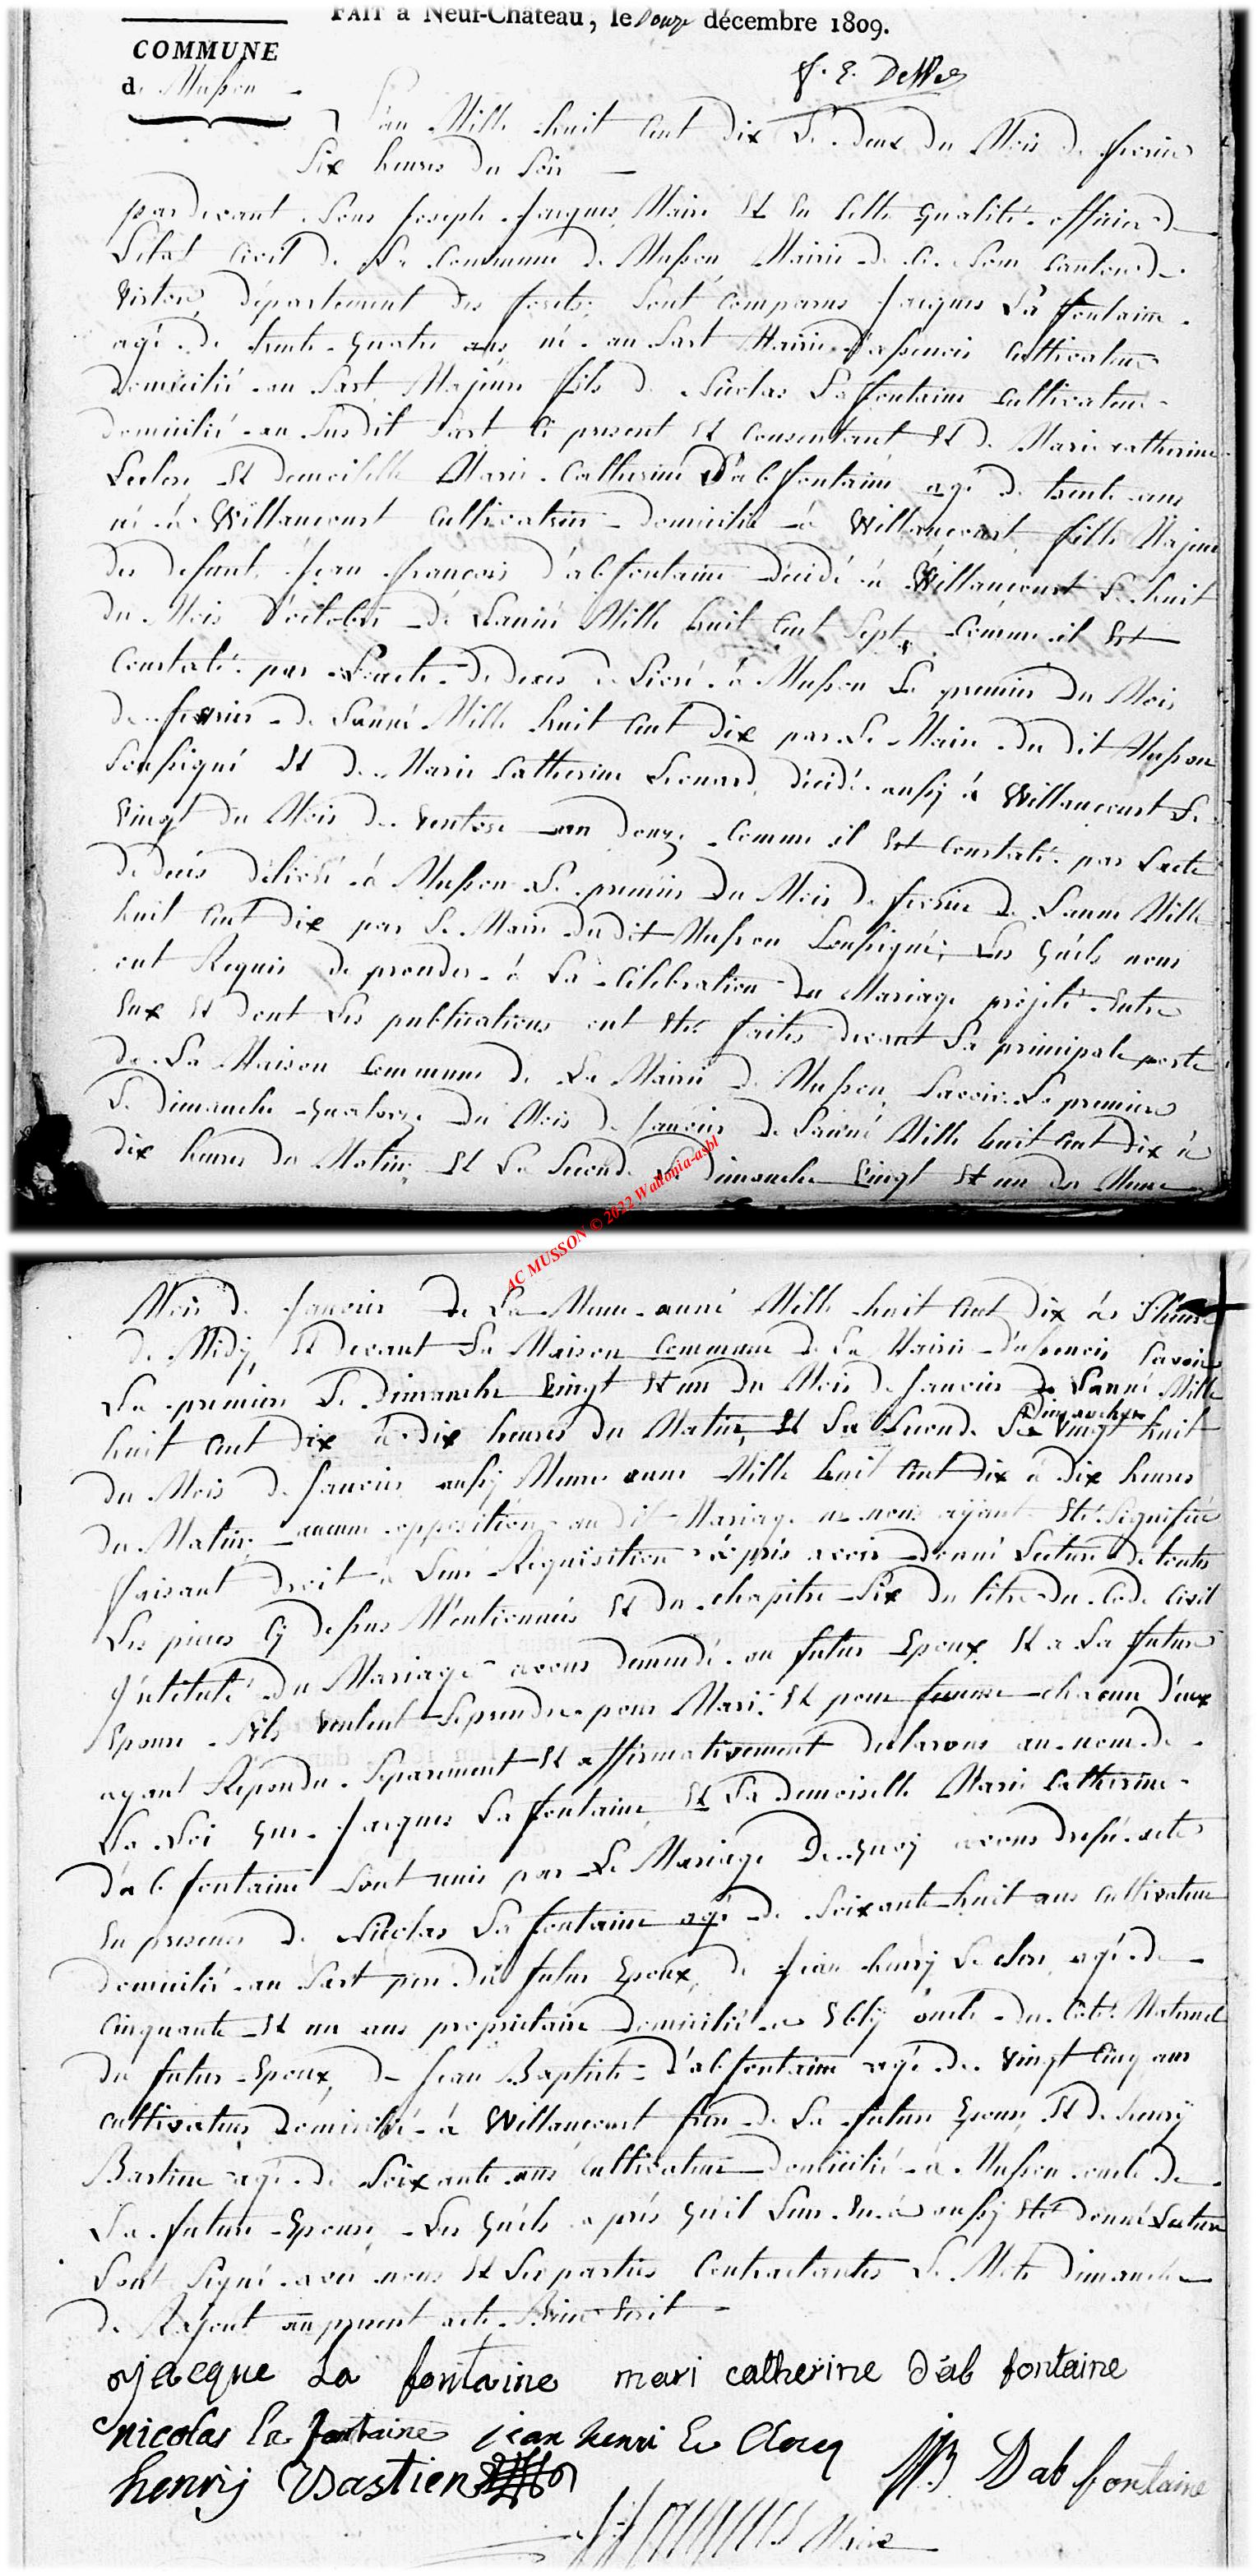 FAIT à Neuf-Château, le Douze décembre 1809.
COMMUNE
de Musson
L'an Mille huit cent dix Le deux du Mois de fevrier
Six heures du Soir
pardevant Nous Joseph Jacques Maire Et En Cette qualité officier de
L'état Civil de La Commune de Musson Mairie de Ce Nom Canton de
Virton, département des forets, Sont Comparus Jacques La fontaine
agé de trente quatre ans né au Sart Mairie d'assenois Cultivateur
Domicilié au Sart Majeur fils de Nicolas La fontaine Cultivateur
domicilié au Susdit Sart Ci present Et Consentant Et de Marie catherine
Leclere Et demoiselle Marie Catherine D'ab fontaine agé de trente ans
né à Willancourt Cultivatrice domicilié à Willancourt fille Majeure
des defunt Jean françois d'ab fontaine décédé à Willancourt Le huit
du Mois d'octobre de L'anné Mille huit Cent Sept, Comme il Est
Constaté par L'acte de deces délivré à Musson Le premier du Mois
de fevrier de L'anné Mille huit Cent dix par Le Maire du dit Musson
Soussigné Et de Marie Catherine Leonard décédé aussy à Willancourt Le
vingt du Mois de Ventose an douze Comme il Est Constaté par L'acte
de deces délivré à Musson Le premier du Mois de fevrier de L'anné Mille
huit Cent dix par Le Maire du dit Musson Soussigné; Les quels nous
ont Requis de proceder à La Célébration du Mariage projeté Entre
Eux Et dont Les publications ont Eté faites devant La principale porte
de La Maison Commune de La Mairie de Musson, Savoir La premiere
Le dimanche quatorze du Mois de Janvier de L'anné Mille huit Cent dix à
dix heures du Matin, Et La Seconde Le dimanche vingt Et un du Meme
AC MUSSON © 2022 Wallonia-asbl
Mois de Janvier de La Meme anné Mille huit Cent dix à L'heure
de Midy, Et devant La Maison Commune de La Mairie d'assenois Savoir
La premiere Le Dimanche vingt Et un du Mois de Janvier de L'anné Mille
Dimanche
huit Cent dix à dix heures du Matin, Et La Seconde Le vingt huit
du Mois de Janvier aussy Meme anné Mille huit Cent dix à dix heures
du Matin, aucune opposition au dit Mariage ne nous ayant Eté Signifiée
faisant droit à Leur Requisition après avoir donné Lecture de toutes
Les pieces Cy dessus Mentionnées Et du chapitre Six du titre du Code Civil
Intitulé Du Mariage avons demandé au futur Epoux Et a La future
Epouse S'ils veulent Se prendre pour Mari Et pour femme chacun d'eux
ayant Repondu Separement Et affirmativement declarons au nom de
La Loi que Jacques La fontaine Et La demoiselle Marie Catherine
d'ab fontaine Sont unis par Le Mariage De quoy avons dressé acte
En presence de Nicolas La fontaine agé de Soixante huit ans Cultivateur
domicilié au Sart pere du futur Epoux, de Jean henry Leclere agé de
Cinquante Et un ans proprietaire domicilié à Ebly oncle du Coté Maternel
du futur Epoux, de Jean Baptiste d'ab fontaine agé de vingt Cinq ans
cultivateur domicilié à Willancourt frere de La future Epouse Et de henry
Bastien agé de Soixante ans Cultivateur domicilié à Musson oncle de
La future Epouse, Les quels après qu'il Leur En a aussy Eté donné Lecture
l'ont Signé avec nous Et Les parties Contractantes Le Mot dimanche
de Rajout au present acte Bien Ecrit
jacque La fontaine mari catherine d'ab fontaine
nicolas la fontaine jean henri Le Clerq
henrij Bastien JB Dab fontaine
J: Jacques Maire